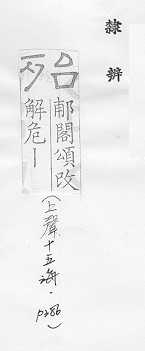 隸辨
殆
郙閣頌改
解危｜
(上聲十五海．p286)